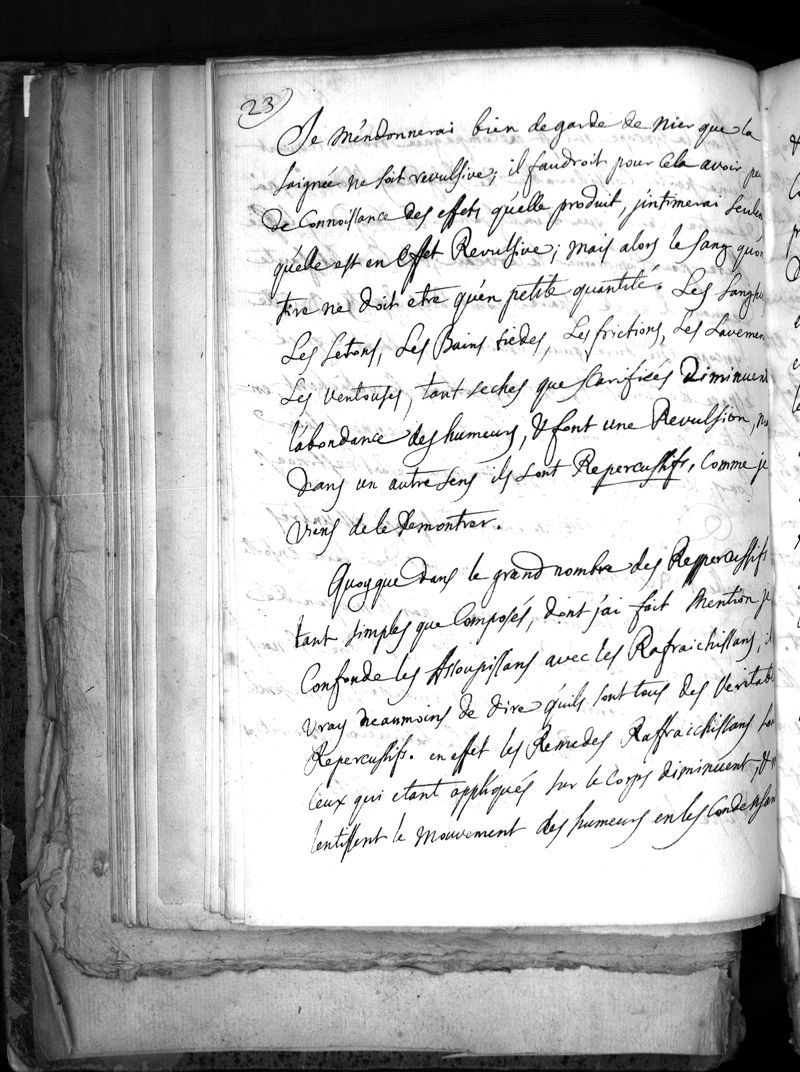 23
Je m'endonnerai bien degarde de nier que la
saignée ne soit revulsive; il faudroit pour cela avoir peu
de Connoissance des effets qu'elle produit, j'intimerai seulem
qu'elle est en effet Revulsive; mais alors le sang qu'on
tire ne doit etre qu'en petite quantité. Les Sangsu
Les Setons, Les Bains tiédes, Les frictions, Les Lavemen
Les Ventouses, tant seches que scarifiées Diminuent
l'abondance des humeurs, & font une Revulsion,
dans un autre sens ils sont Repercussifs, Comme je
viens de le Demontrer.
Quoyque dans le grand nombre des Reppercussifs
tant simples que Composés, dont j'ai fait Mention je
Confonde les Assoupissans avec les Rafraichissans, il
vray neaumoins de dire qu'ils sont tous des Veritab
Repercussifs. en effet les Remedes Raffraichissans so
Ceux qui etant appliqués sur le Corps diminuent, &
lentissent le Mouvement des humeurs en les Condensan